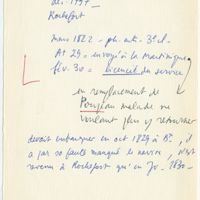 Rochefort
mars 1822 - ph. ent. 3e cl.
At 29 = envoyé à la Martinique
fév. 30 = licencié du service
en remplacement de
malade ne
voulant plus y retourner
devait embarquer en oct 1829 à Rt, il
a par sa faute manqué le navire,
revenu à Rochefort qu'en Jv. 1830